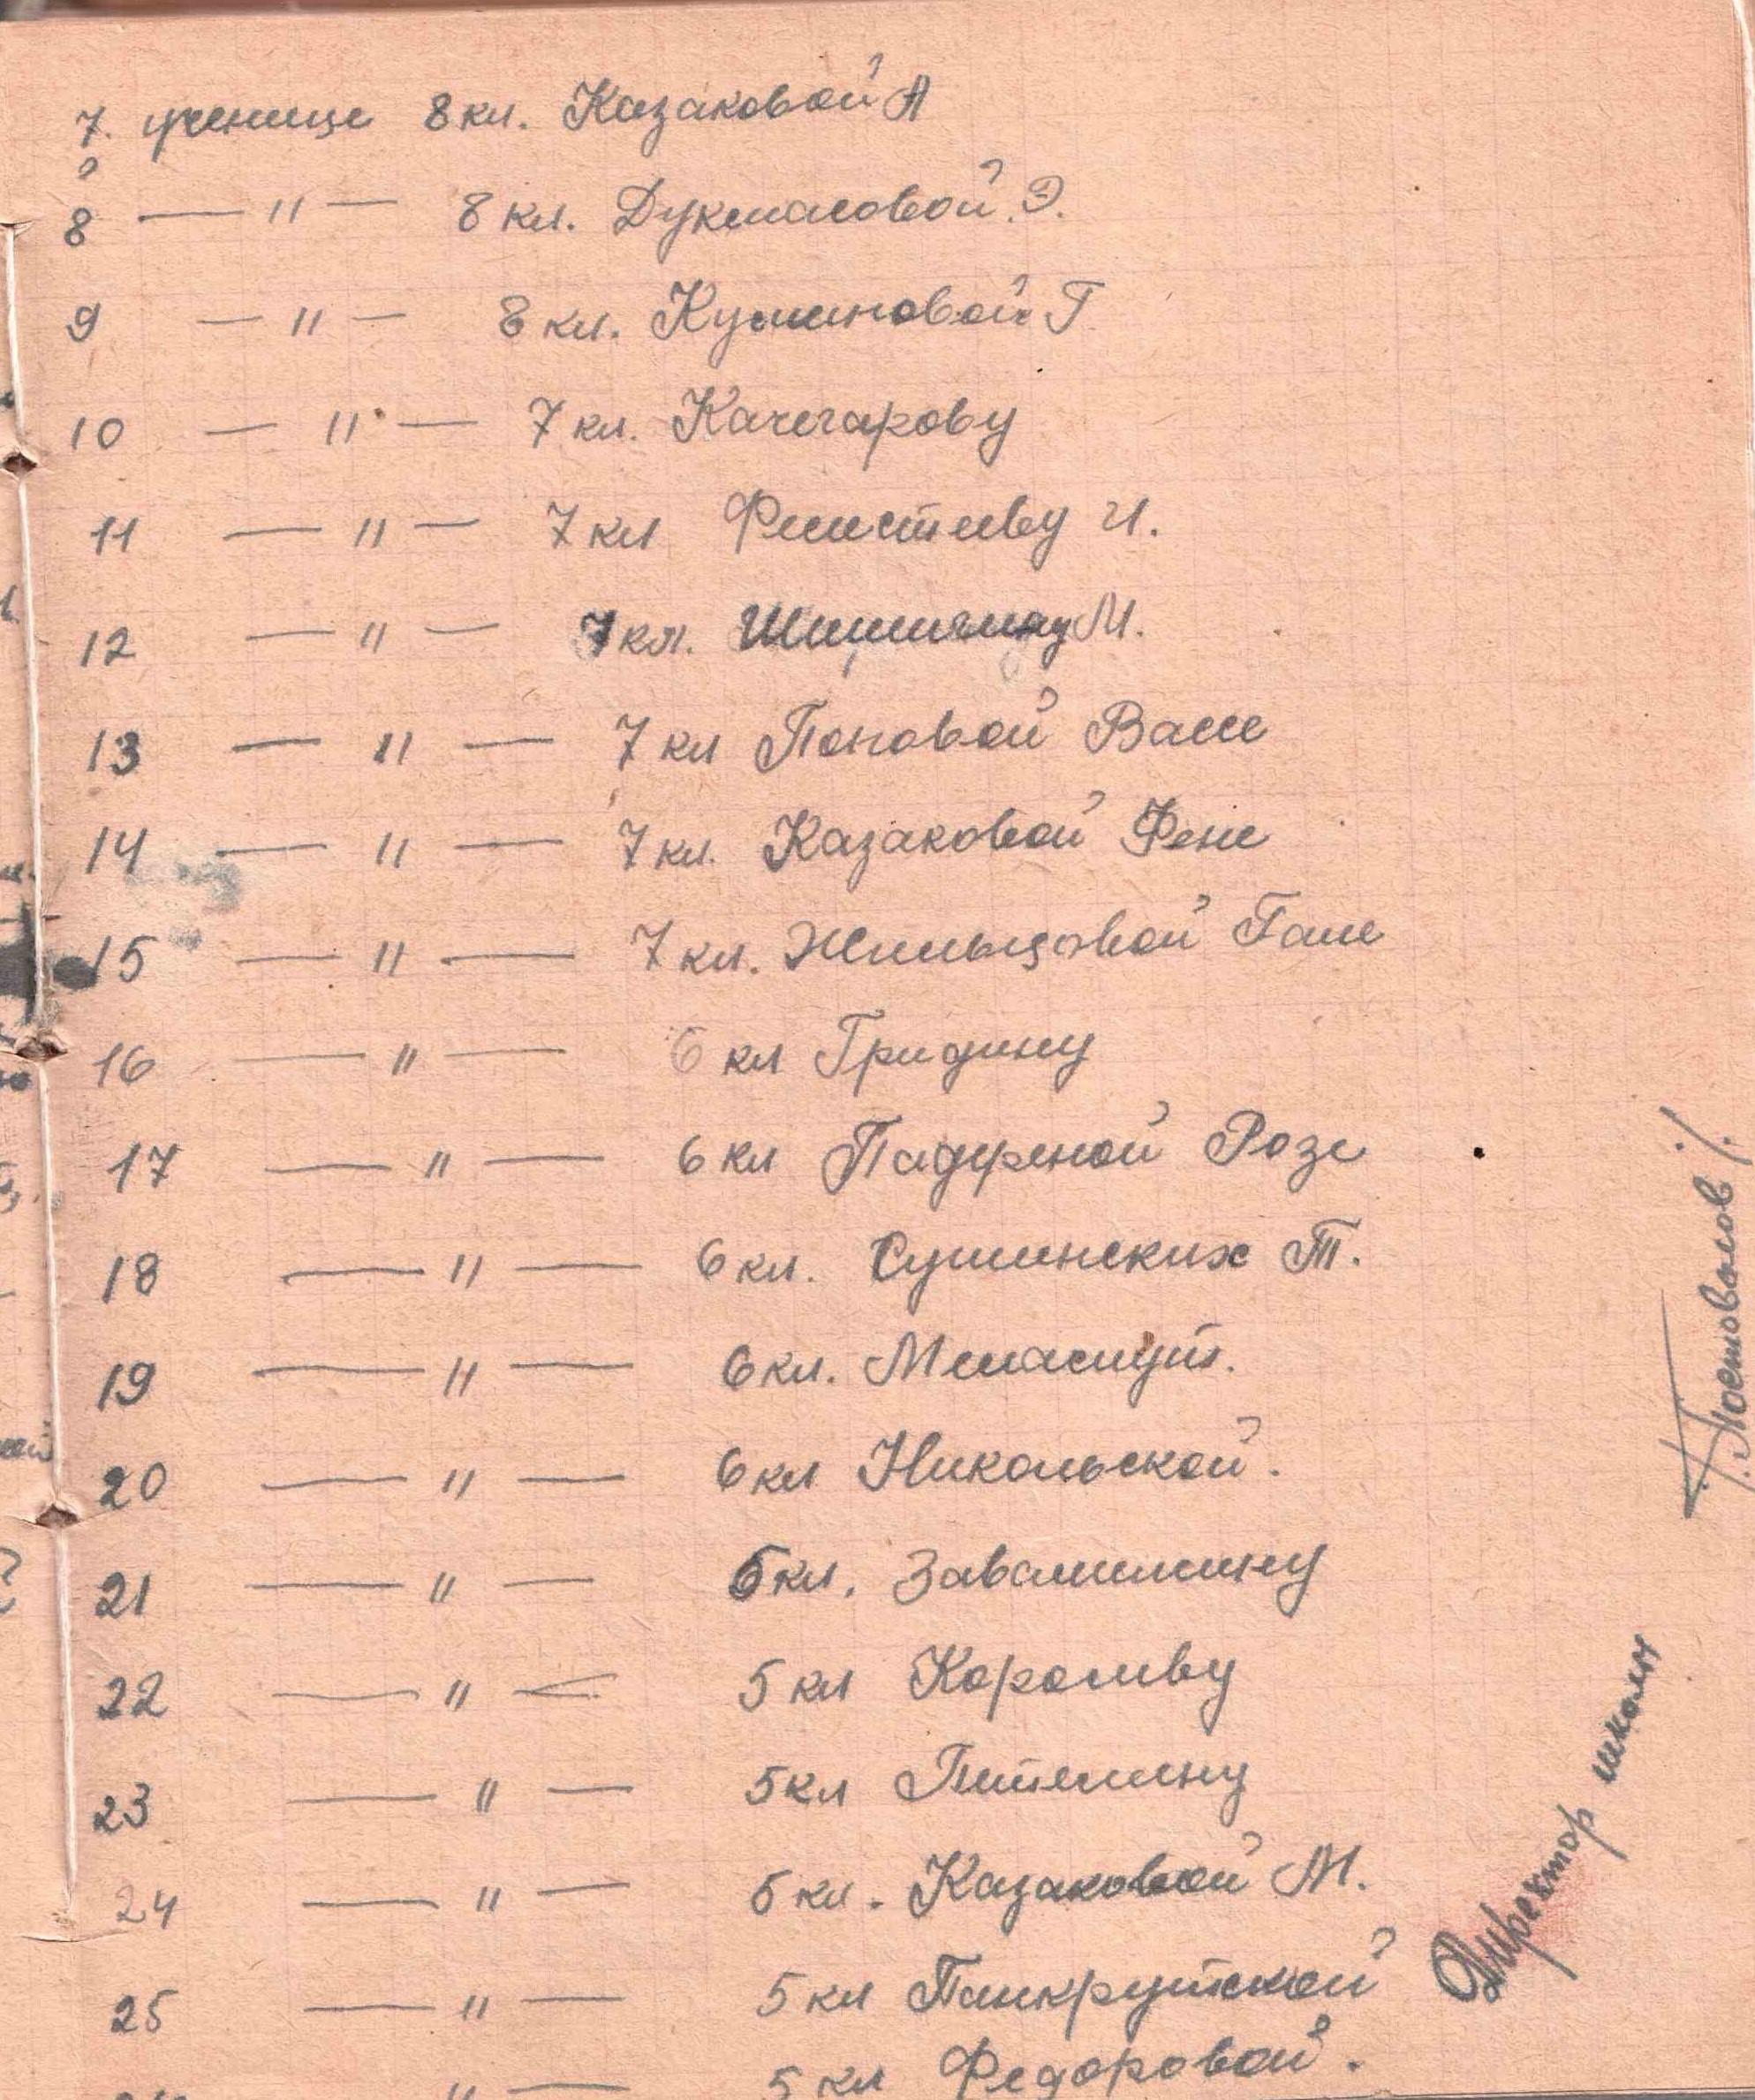 7. ученице 8 кл. Казаковой А
8 — " — 8 кл. Дукмасовой Э.
9 — " — 8 кл. Куминовой Г
10 — " — 7 кл. Качегарову
11 — " — 7 кл И.
12 — " — 7 кл. М.
13 — " — 7 кл Поповой Вале
14 — " — 7 кл. Казаковой Фене
15 — " — 7 кл. Жильцовой Гале
16 — " — 6 кл Гридину
17 — " — 6 кл Падериной Розе
18 — " — 6 кл. Сушинских Т.
19 — " — 6 кл.
20 — " — 6 кл Никольской.
21 — " — 5 кл. Завалишину
22 — " — 5 кл Королеву
23 — " — 5 кл Пителину
24 — " — 5 кл. Казаковой М.
25 — " — 5 кл Панкрутской
" — 5 кл Федоровой.
Директор школы
/Постовалов/.